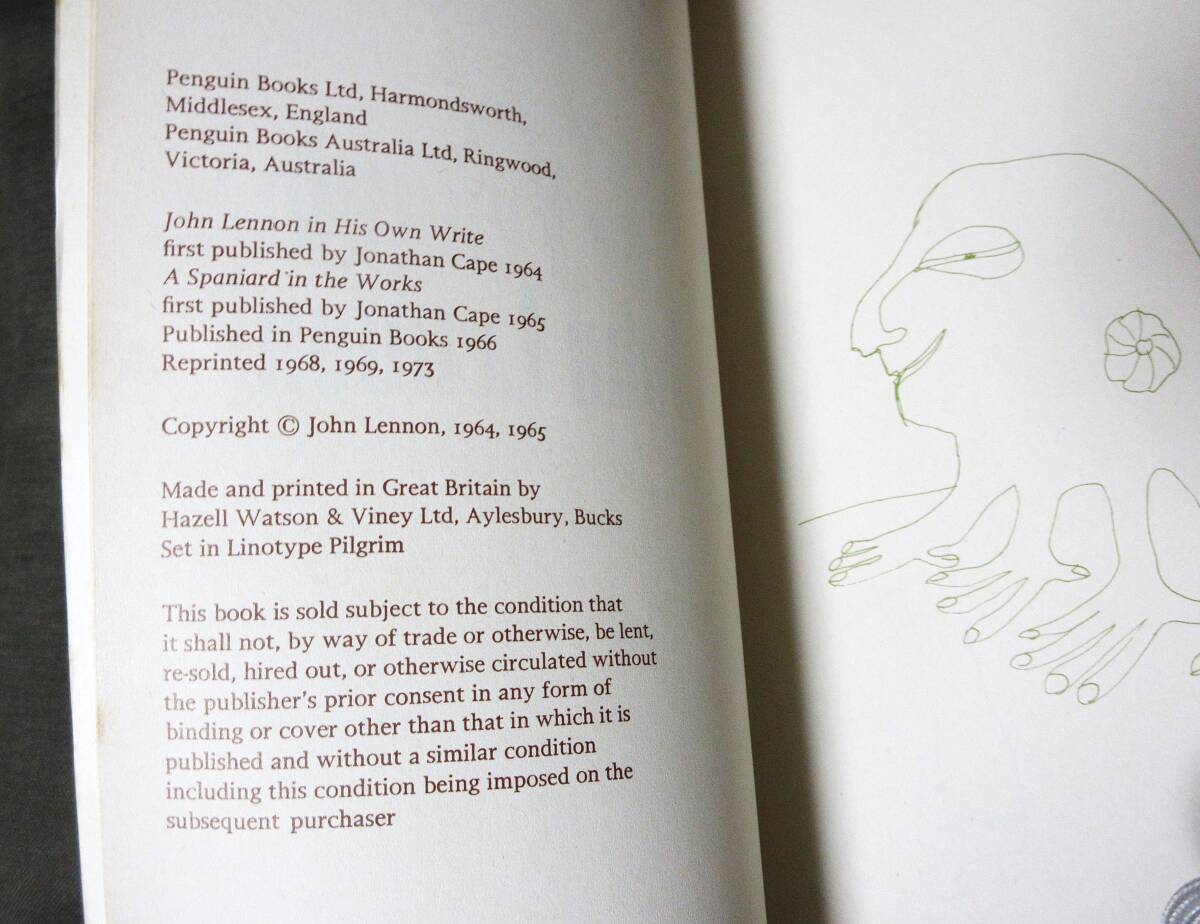 Penguin Books Ltd, Harmondsworth,
Middlesex, England
Penguin Books Australia Ltd, Ringwood,
Victoria, Australia
John Lennon in His Own Write
first published by Jonathan Cape 1964
A Spaniard in the Works
first published by Jonathan Cape 1965
Published in Penguin Books 1966
Reprinted 1968, 1969, 1973
Copyright © John Lennon, 1964, 1965
Made and printed in Great Britain by
Hazell Watson & Viney Ltd, Aylesbury, Bucks
Set in Linotype Pilgrim
This book is sold subject to the condition that
it shall not, by way of trade or otherwise, be lent,
re-sold, hired out, or otherwise circulated without
the publisher's prior consent in any form of
binding or cover other than that in which it is
published and without a similar condition
including this condition being imposed on the
subsequent purchaser